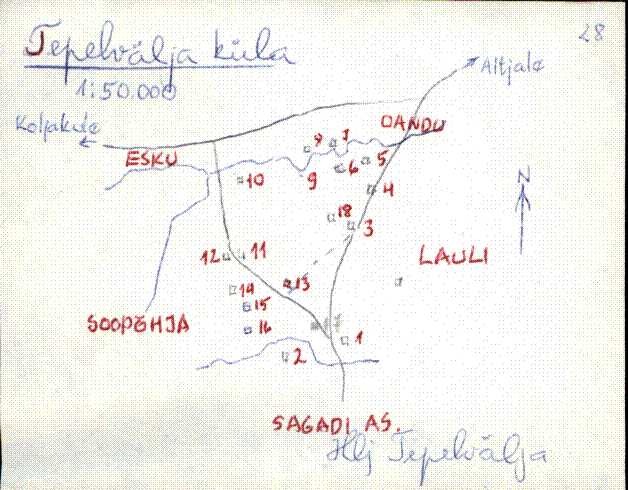 28
Tepelvälja küla
1:50.000
Altjale
Koljakule
OANDU
ESKU
7
6
5
9
10
4
18
3
12 11
LAULI
13
14
15
SOOPÕHJA
16
1
2
SAGADI AS.
Hlj Tepelvälja
N